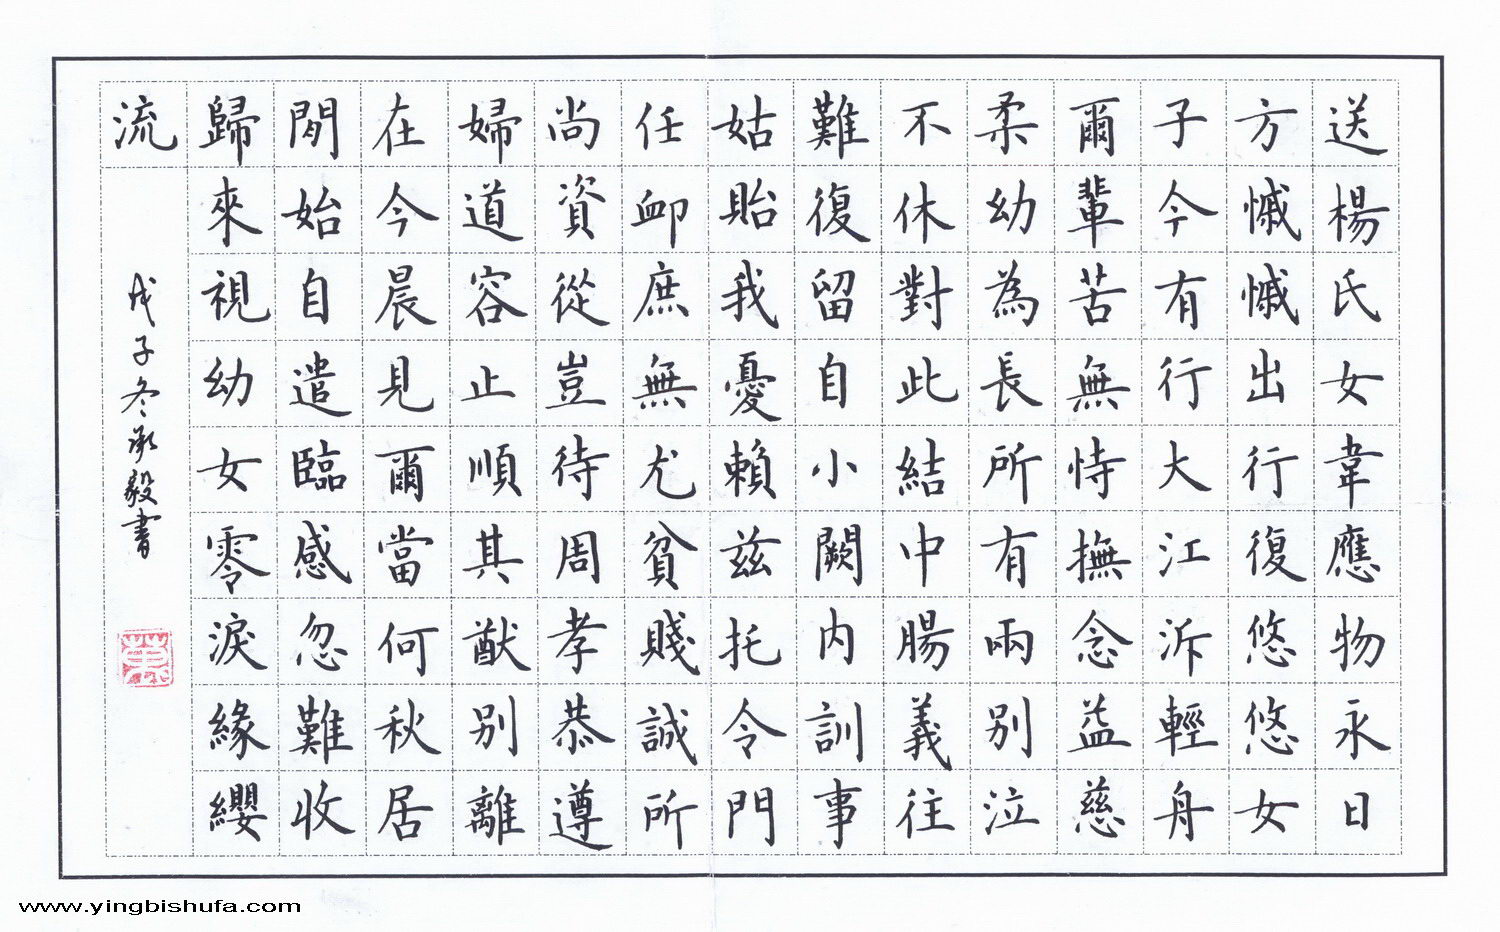 送楊氏女韋應物永日
方慽慽出行復悠悠女
子今有行大江泝輕舟
爾輩苦無恃撫念益慈
柔幼為長所有兩別泣
不休對此結中腸義往
難復留自小闕內訓事
姑貽我憂賴茲托令門
任卹庶無尤貧賤誠所
尚資從豈待周孝恭遵
婦道容止順其猷別離
在今晨見爾當何秋居
閒始自遣臨感忽難收
歸來視幼女零淚緣纓
流
戊子冬承毅書
www.yingbishufa.com